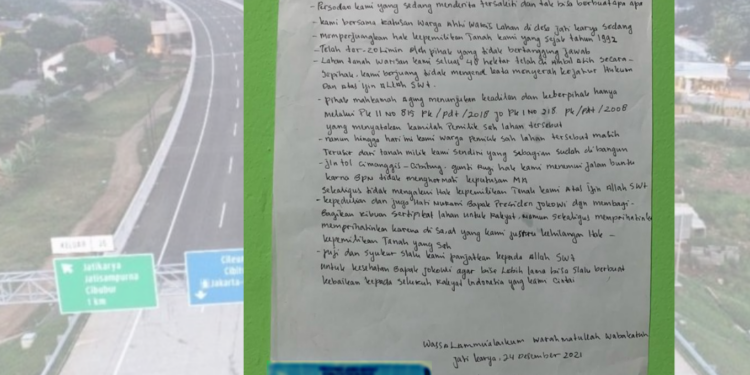 - Persoalan kami yang sedang menderita tersakiti dan tak bisa berbuat apa apa
- kami bersama Ratusan Warga Ahli Waris Lahan di desa Jati Karya sedang
- memperjuangkan hak kepemilikan Tanah kami yang sejak tahun 1992
- Telah ter-zolimin oleh pihak yang tidak bertanggung jawab
- Lahan tanah warisan kami seluas 48 hektar telah di Ambil Alih secara -
Sepihak. kami berjuang tidak mengenal kata menyerah kejalur Hukum
Dan atas Ijin ALLAH SWT.
- pihak mahkamah Agung menunjukan keadilan dan keberpihakannya
melalui PK II NO 815 PK/pdt/2018 Jo PK I NO 218 PK/Pdt/2008
yang menyatakan kamilah Pemilik Sah lahan tersebut
- namun hingga hari ini kami warga Pemilik sah lahan tersebut masih
Terusir dari tanah milik kami sendiri yang sebagian sudah di bangun
- Jln tol Cimanggis - Cibitung. ganti Rugi hak kami menemui jalan buntu
karna BPN tidak menghormati keputusan MA
Sekaligus tidak mengakui Hak kepemilikan Tanah kami Atas Ijin allah SWT
- kepedulian dan juga Hati Nurani Bapak Presiden Jokowi dgn membagi -
Bagikan ribuan sertipikat lahan untuk Rakyat, Namun sekaligus memprihatinkan
memprihatinkan karena di saat yang kami justru kehilangan Hak -
kepemilikan Tanah yang Sah
- puji dan syukur slalu kami panjatkan kepada allah SWT
untuk kesehatan Bapak Jokowi agar bisa Lebih lama bisa slalu berbuat
kebaikan kepada seluruh Rakyat Indonesia yang kami Cintai
Wassalammualaikum warahmatullah wabarkatuh
Jati Karya, 24 Desember 2021
KELUAR
Jatikarya
Jatisampurna
Cibubur
1 km
Jakarta